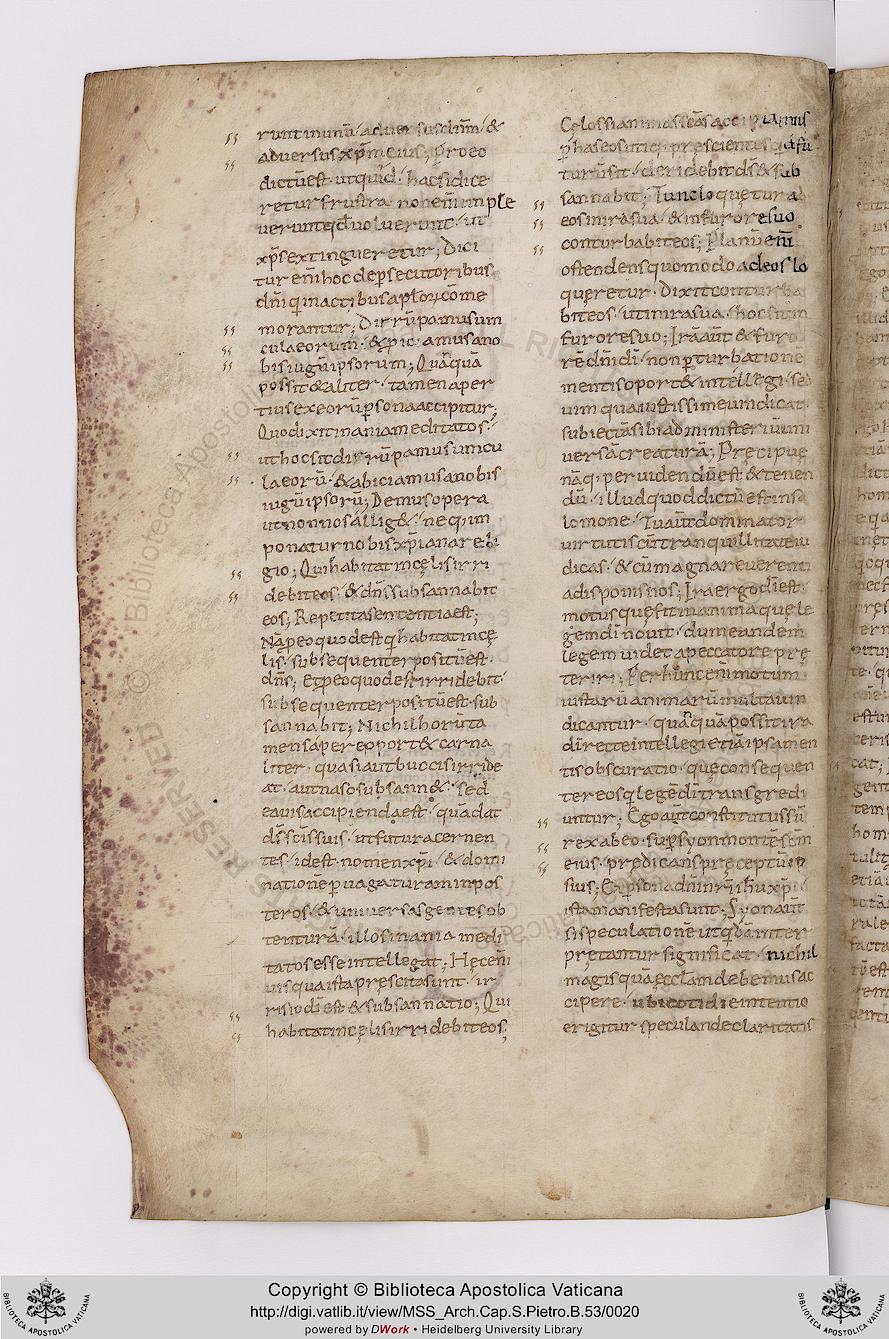 runt in unū · adversus dn̄m · &
adversus xp̄m eius; Pro eo
dictū est · ut quid · hac si dice
retur frustra · non enī imple
verunt qd̄ voluerunt · ut
xp̄s extingueretur; Dici
tur enī hoc de p̱secutoribus
dn̄i q̇ in actibus aplo℞ com̄e
morantur; Dirrūpamus uin
cula eorum · & p̱ic·amus a no
bis iugū ipsorum; Quāquā
possit & aliter · tamen aper
tius ex eorū p̱sona accipitur;
Quod ixit inania meditatos·
ut hoc sit dirrūpamus uincu
la eorū · & abiciamus a nobis
iugū ipsorū; Demus opera
ut non nos allig& · neq; im
ponatur nobis xp̄iana reli
gio; Qui habitat in cęlis irri
debit eos · & dn̄s subsannabit
eos; Repetita sententia est;
Nā p̱ eo quod est q̇ habitat in cę
lis · subsequenter positū est ·
dn̄s; Et p̱ eo quod est irridebit
subsequenter positū est sub
sannabit; Nichil horū ta
men sapere oport& carna
liter · quasi aut buccis irride
at · aut naso subsann& · sed
ea vis accipienda est · quā dat
dı̄ sc̄is suis · ut futura cernen
tes · id est · nomen xp̄i · & domi
nationē p̱uagaturam in pos
teros · & universas gentes ob
tenturā · illos inania medi
tatos esse intellegat; Hęc enī
uis qua ista prescita sunt · ir
risio dı̄ est & subsannatio; Qui
habitat in cęlis irridebit eos;
Cęlos si animas sc̄as accipiamus
p̱ has eos utiq; prescientes q̇d fu
turū sit · deridebit ds̄ & sub
sannabit; Tunc loquętur ad
eos in ira sua · & in furore suo
conturbabit eos; Planū enī
ostendens quomodo ad eos lo
quęretur · dixit conturba
bit eos · ut in ira sua · hoc sit in
furore suo; Irā aūt & furo
rē dn̄i dı̄ · non p̱turbationē
mentis oport& intellegi · sed
uim qua iustissime uindicat ·
subiectā sibi ad ministeriū uni
versā creaturā; Precipuę
nāq; peruidendū est & tenen
dū · illud quod dictū est in sa
lomone · Tu aūt dominator
virtutis cū tranquillitate iu
dicas · & cum magna reverentia
disponis nos; Ira ergo dı̄ est ·
motus quę fit in anima quę le
gem dı̄ novit · dum eandem
legem videt a peccatore prę
teriri; Per hūnc enī motum
iustarū animarū multa vin
dicantur · quāquā possit ira
dı̄ recte intellegi etiā ipsa men
tis obscuratio · quę consequen
ter eos q̇ legē dı̄ transgredi
untur; Ego aūt constitutus sū
rex ab eo · sup̱ syon montē sc̄m
eius · prędicans pręceptū ip
sius; Ex p̱sona dn̄i nr̄i ih̄u xp̄i
ista manifesta sunt; Syon aūt
si speculationē ut q̇dā inter
pretantur significat · nichil
magis quā ęccl̄am debemus ac
cipere · ubi cotidie intentio
erigitur speculandę claritatis
Copyright © Biblioteca Apostolica Vaticana
http://digi.vatlib.it/view/MSS_Arch.Cap.S.Pietro.B.53/0020
powered by DWork • Heidelberg University Library